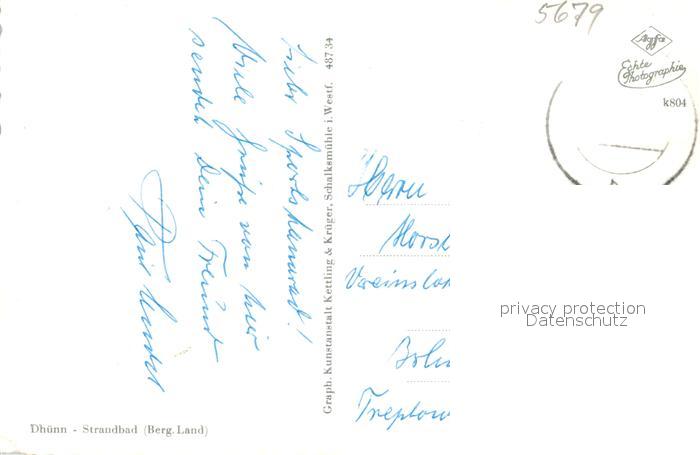 5679
Agfa
Echte
Photographie
k804
Lieber Sportskamerad!
Viele Grüße von hier
sendet Dein Freund
Graph. Kunstanstalt Kettling & Krüger, Schalksmühle i. Westf. 487 34
Herrn
Horst
Vereinslok
privacy protection
Datenschutz
Treptow
Dhünn - Strandbad (Berg. Land)